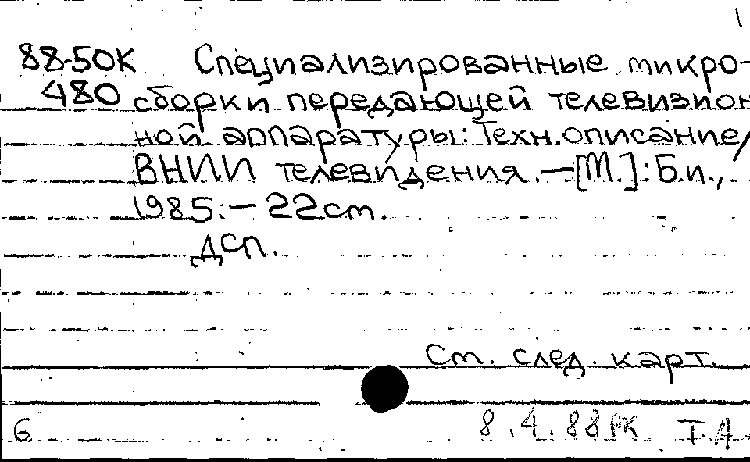 1
88-50К Специализированные микро-
480 сборки передающей телевизион
ной аппаратуры: Техн. описание/
ВНИИ телевидения. — [М.]: Б.и.,
1985. — 22 см.
ДСП.
См. след. карт.
6 8.4.88 РК Т.А